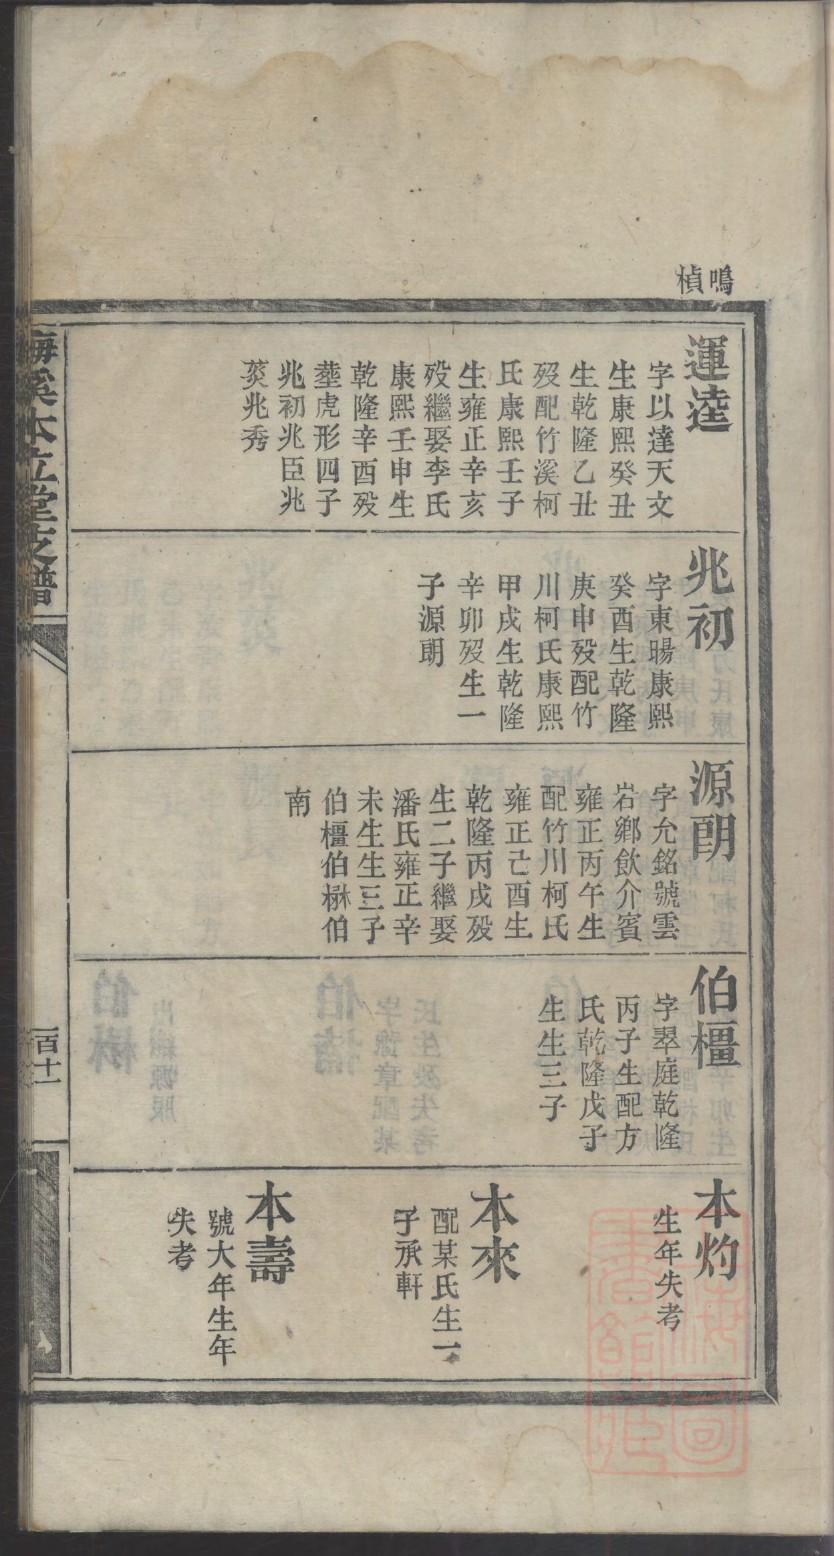 鳴
楨
運逵
字以達天文
生康熙癸丑
生乾隆乙丑
歿配竹溪柯
氏康熙壬子
生雍正辛亥
歿繼娶李氏
康熙壬申生
乾隆辛酉歿
塟虎形四子
兆初兆臣兆
蓂兆秀
兆初
字東暘康熙
癸酉生乾隆
庚申歿配竹
川柯氏康熙
甲戌生乾隆
辛卯歿生一
子源朗
源朗
字允銘號雲
岩鄉飲介賓
雍正丙午生
配竹川柯氏
雍正己酉生
乾隆丙戌歿
生二子繼娶
潘氏雍正辛
未生生三子
伯橿伯楙伯
南
伯橿
字翠庭乾隆
丙子生配方
氏乾隆戊子
生生三子
本灼
生年失考
本來
配某氏生一
子承軒
本壽
號大年生年
失考
溪本立堂支譜
百十一